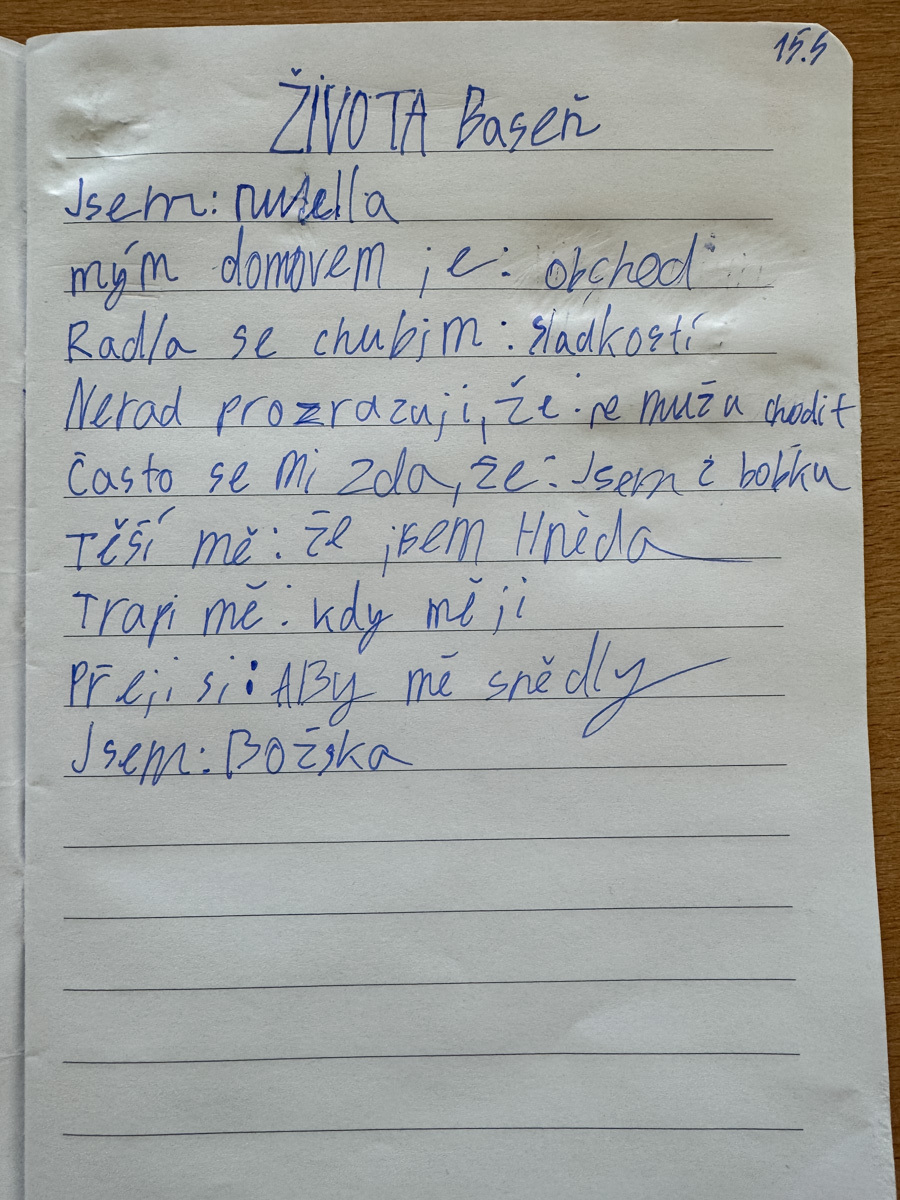 15.5
ŽIVOTA Baseň
Jsem: nutella
mým domovem je: obchod
Rad/a se chubim: sladkostí
Nerad prozrazuji, že: ne mužu chodit
Často se mi zda, že: Jsem z bobku
Těší mě: že jsem Hněda
Trapi mě: kdy mě ji
Přeji si: ABy mě snědly
Jsem: Božska